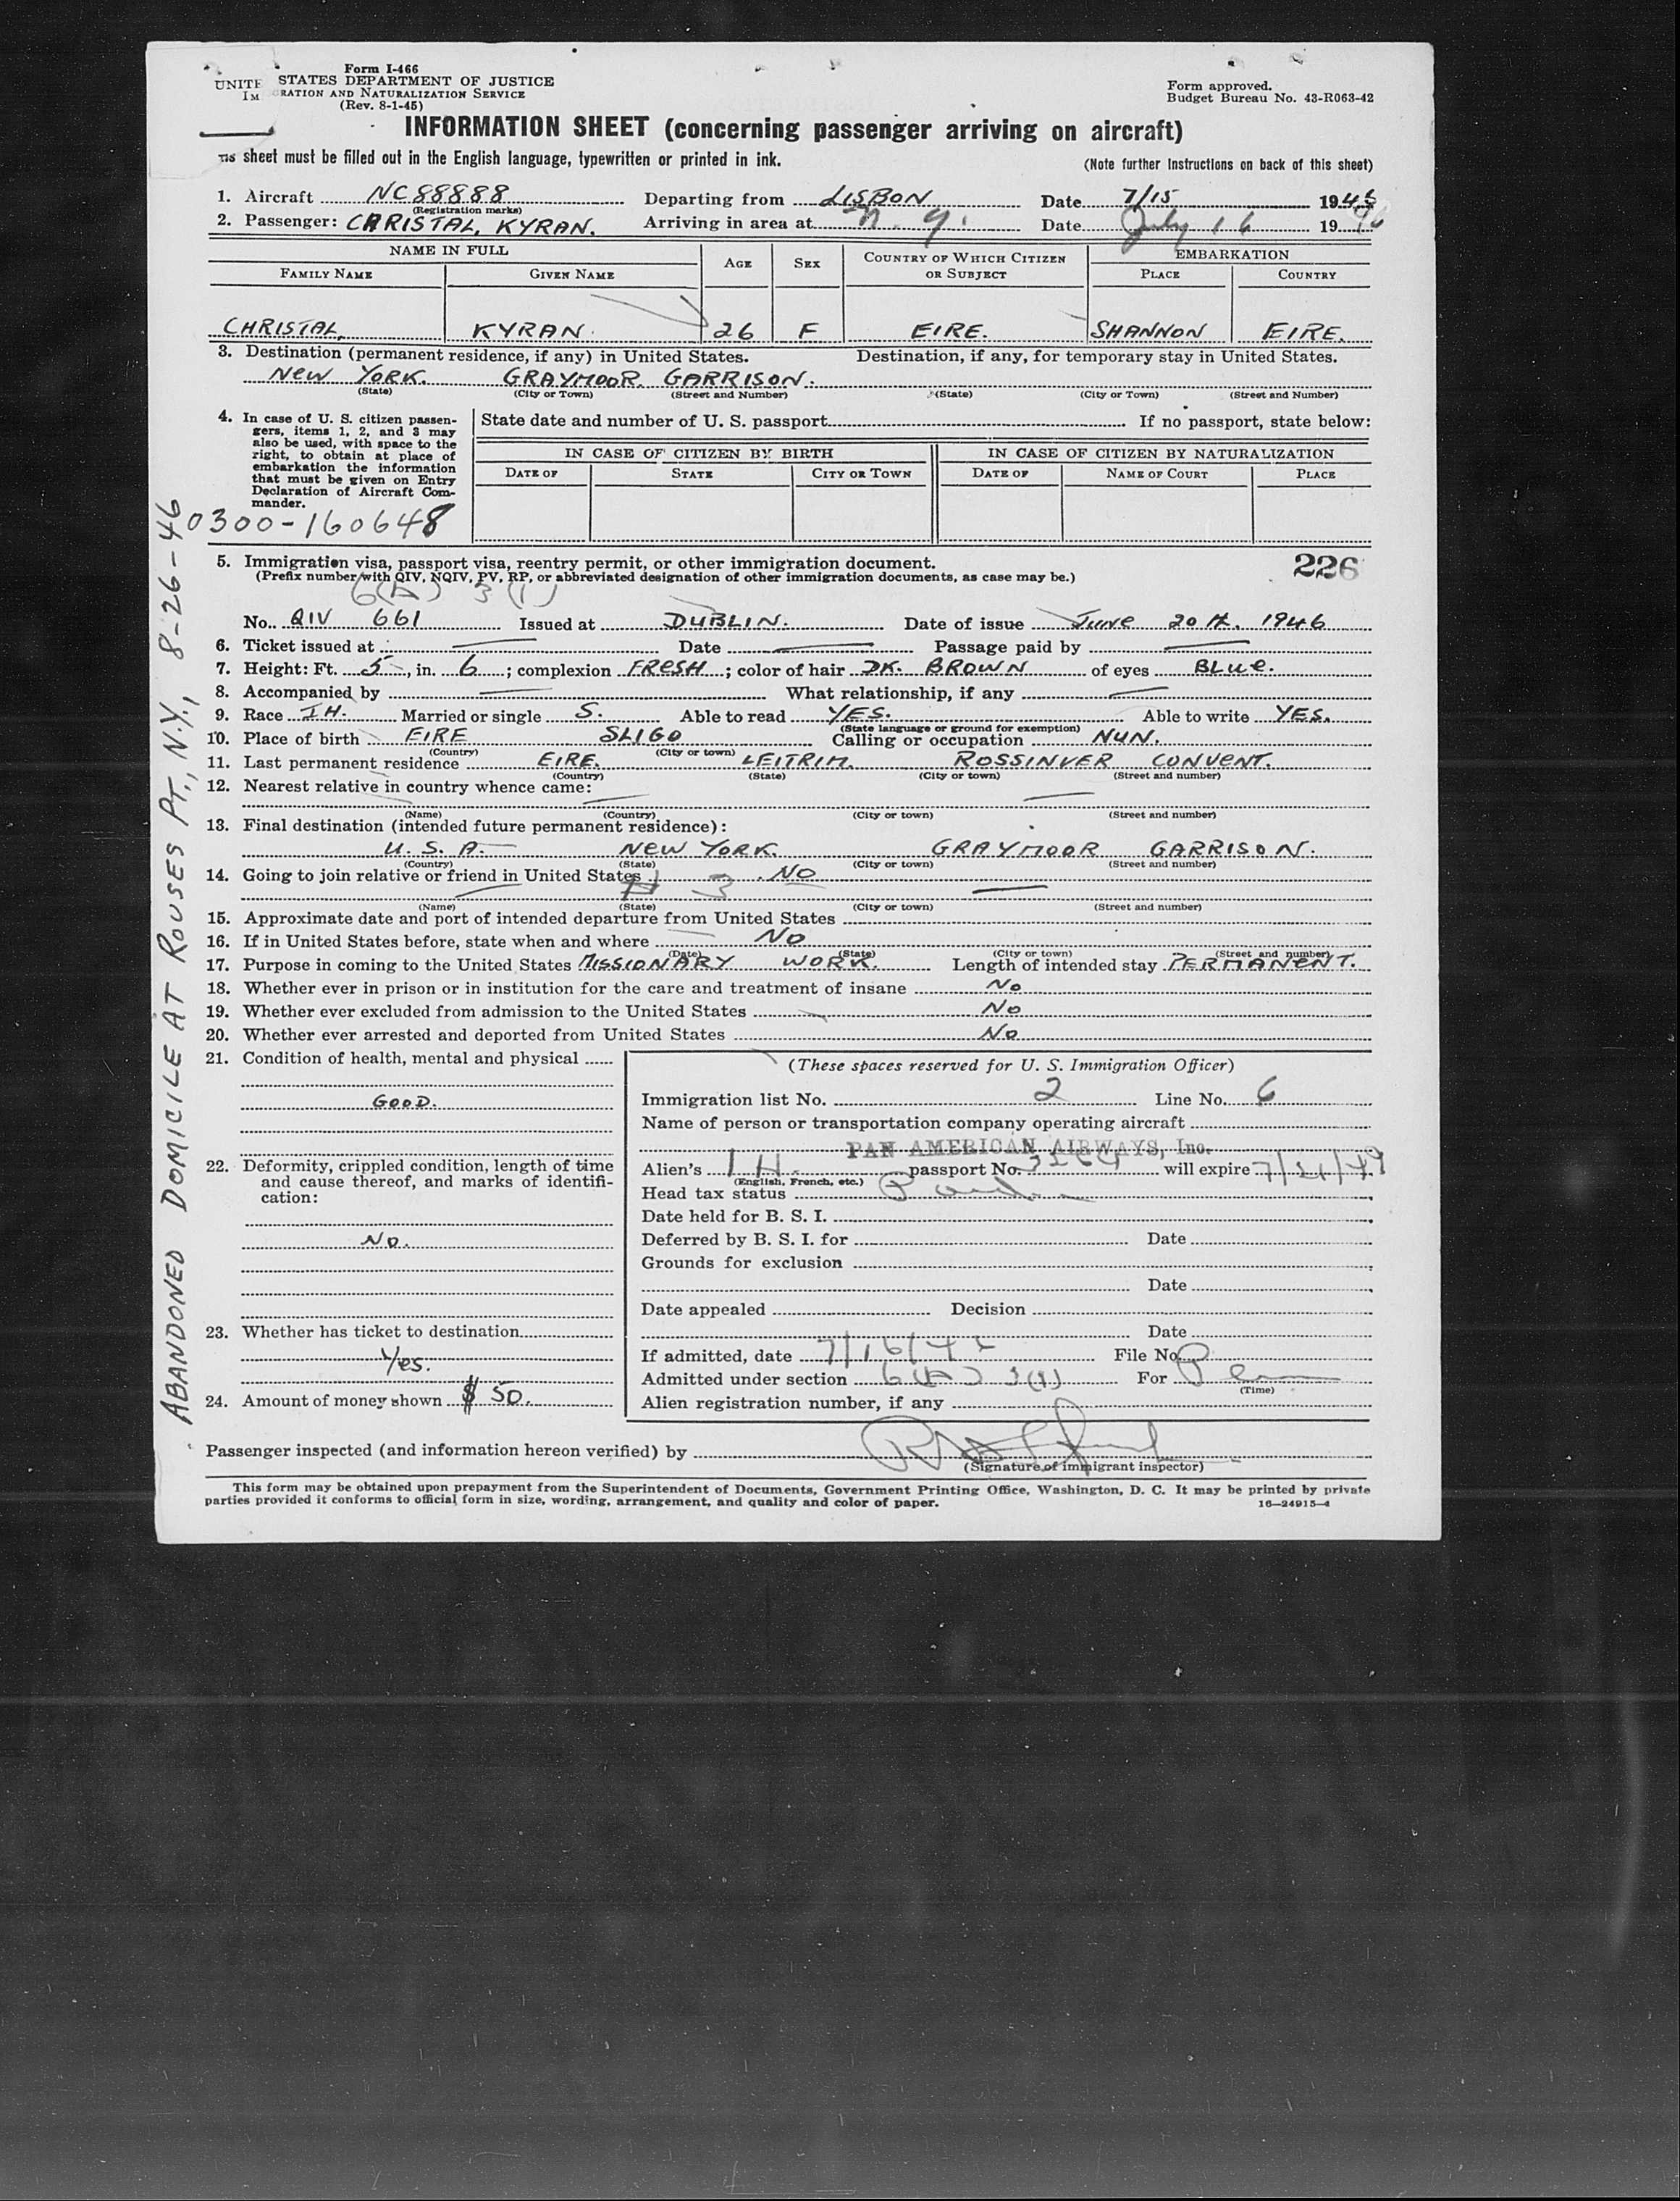 Form I-466
UNITE STATES DEPARTMENT OF JUSTICE
IM RATION AND NATURALIZATION SERVICE
(Rev. 8-1-45)
Form approved.
Budget Bureau No. 43-R063-42
INFORMATION SHEET (concerning passenger arriving on aircraft)
sheet must be filled out in the English language, typewritten or printed in ink. (Note further instructions on back of this sheet)
1. Aircraft NC88888 Departing from LISBON Date 7/15 1946
(Registration marks)
2. Passenger: CHRISTAL, KYRAN. Arriving in area at N.Y. Date July 16 1946
NAME IN FULL AGE SEX COUNTRY OF WHICH CITIZEN OR SUBJECT EMBARKATION
FAMILY NAME GIVEN NAME PLACE COUNTRY
CHRISTAL, KYRAN. 26 F EIRE. SHANNON EIRE.
3. Destination (permanent residence, if any) in United States. Destination, if any, for temporary stay in United States.
NEW YORK. GRAYMOOR GARRISON.
(State) (City or Town) (Street and Number) (State) (City or Town) (Street and Number)
4. In case of U. S. citizen passengers, items 1, 2, and 3 may also be used, with space to the right, to obtain at place of embarkation the information that must be given on Entry Declaration of Aircraft Commander.
State date and number of U. S. passport If no passport, state below:
IN CASE OF CITIZEN BY BIRTH IN CASE OF CITIZEN BY NATURALIZATION
DATE OF STATE CITY OR TOWN DATE OF NAME OF COURT PLACE
0300-160648
5. Immigration visa, passport visa, reentry permit, or other immigration document. 226
(Prefix number with QIV, NQIV, PV, RP, or abbreviated designation of other immigration documents, as case may be.)
6(A) 3(1)
No. QIV 661 Issued at DUBLIN. Date of issue June 20th. 1946
6. Ticket issued at Date Passage paid by
7. Height: Ft. 5, in. 6; complexion FRESH; color of hair DK. BROWN of eyes BLUE.
8. Accompanied by What relationship, if any
9. Race IH. Married or single S. Able to read YES. Able to write YES.
(State language or ground for exemption)
10. Place of birth EIRE SLIGO Calling or occupation NUN.
(Country) (City or town)
11. Last permanent residence EIRE. LEITRIM. ROSSINVER CONVENT.
(Country) (State) (City or town) (Street and number)
12. Nearest relative in country whence came:
(Name) (Country) (City or town) (Street and number)
13. Final destination (intended future permanent residence):
U. S. A. NEW YORK. GRAYMOOR GARRISON.
(Country) (State) (City or town) (Street and number)
14. Going to join relative or friend in United States NO
3
(Name) (State) (City or town) (Street and number)
15. Approximate date and port of intended departure from United States
16. If in United States before, state when and where NO
(Date) (State) (City or town) (Street and number)
17. Purpose in coming to the United States MISSIONARY WORK. Length of intended stay PERMANENT.
18. Whether ever in prison or in institution for the care and treatment of insane No
19. Whether ever excluded from admission to the United States No
20. Whether ever arrested and deported from United States No
21. Condition of health, mental and physical
GOOD.
22. Deformity, crippled condition, length of time and cause thereof, and marks of identification:
No.
23. Whether has ticket to destination
Yes.
24. Amount of money shown $ 50.
(These spaces reserved for U. S. Immigration Officer)
Immigration list No. 2 Line No. 6
Name of person or transportation company operating aircraft
PAN AMERICAN AIRWAYS, Inc.
Alien's IH. passport No. will expire
(English, French, etc.)
Head tax status
Date held for B. S. I.
Deferred by B. S. I. for Date
Grounds for exclusion
Date
Date appealed Decision
Date
If admitted, date 7/16/46 File No.
Admitted under section 6(A) 3(1) For Perm
(Time)
Alien registration number, if any
Passenger inspected (and information hereon verified) by
(Signature of immigrant inspector)
This form may be obtained upon prepayment from the Superintendent of Documents, Government Printing Office, Washington, D. C. It may be printed by private
parties provided it conforms to official form in size, wording, arrangement, and quality and color of paper. 16—24915-4
ABANDONED DOMICILE AT ROUSES PT., N.Y., 8-26-46